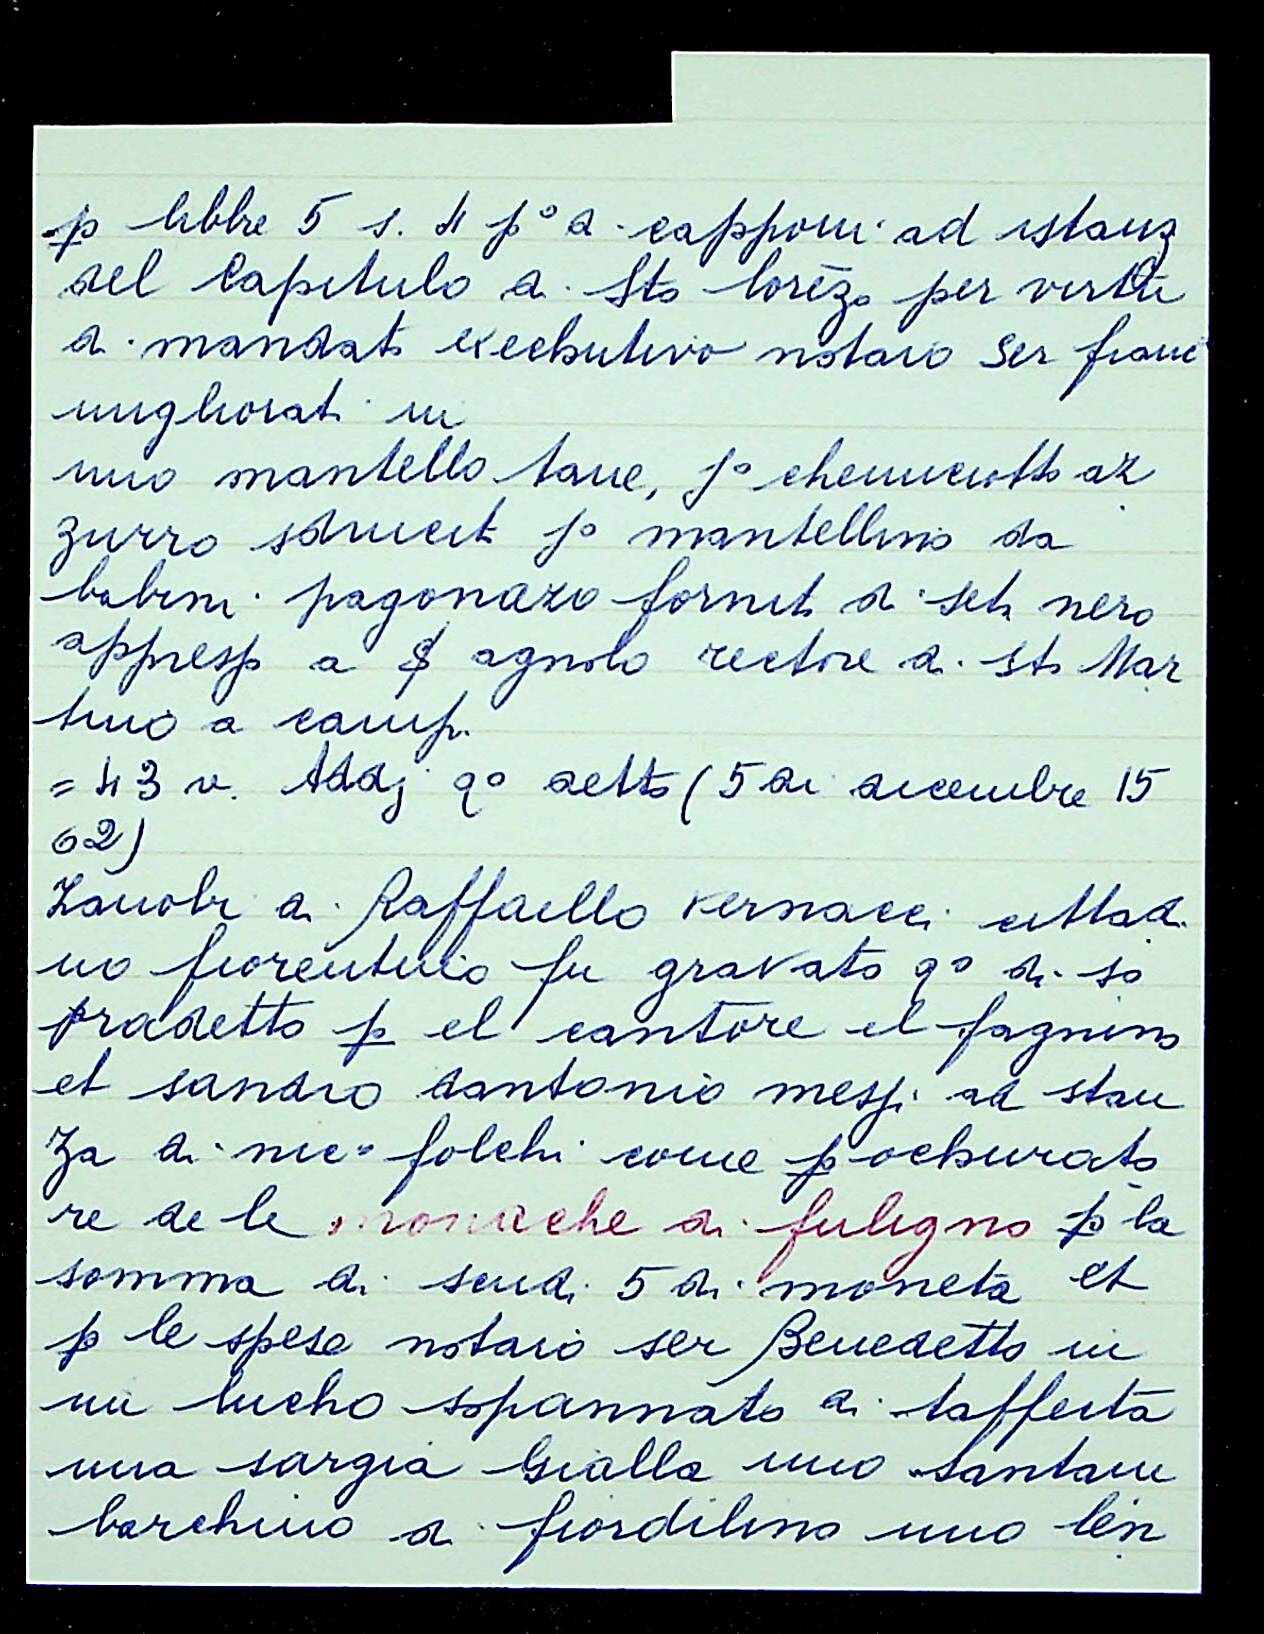 p libbre 5 s. 4 pº di capponi ad istanz
del Capitulo di Sto lorēzo per virtù
di mandato execbutivo notaio Ser franc
migliorati in
uno mantello tane, jº
zurro sdrucito jº mantellino da
babini pagonazo fornito di seta nero
appresso a S agnolo rectore di sto Mar
tino a campi
= 43 v. Addj qº detto (5 di dicembre 15
62)
Zanobi di Raffaello Vernacci cittadi
no fiorentino fu gravato qº di so
pradetto p el cantore el fagnino
et sandro dantonio mesſi ad stan
za di nicº folchi come pochurato
re de le monache di fuligno p la
somma di scudi 5 di moneta et
p le spese notaio ser Benedetto in
un lucho sopannato di taffettà
una sargia Gialla uno santam
barchino di fiordilino uno len